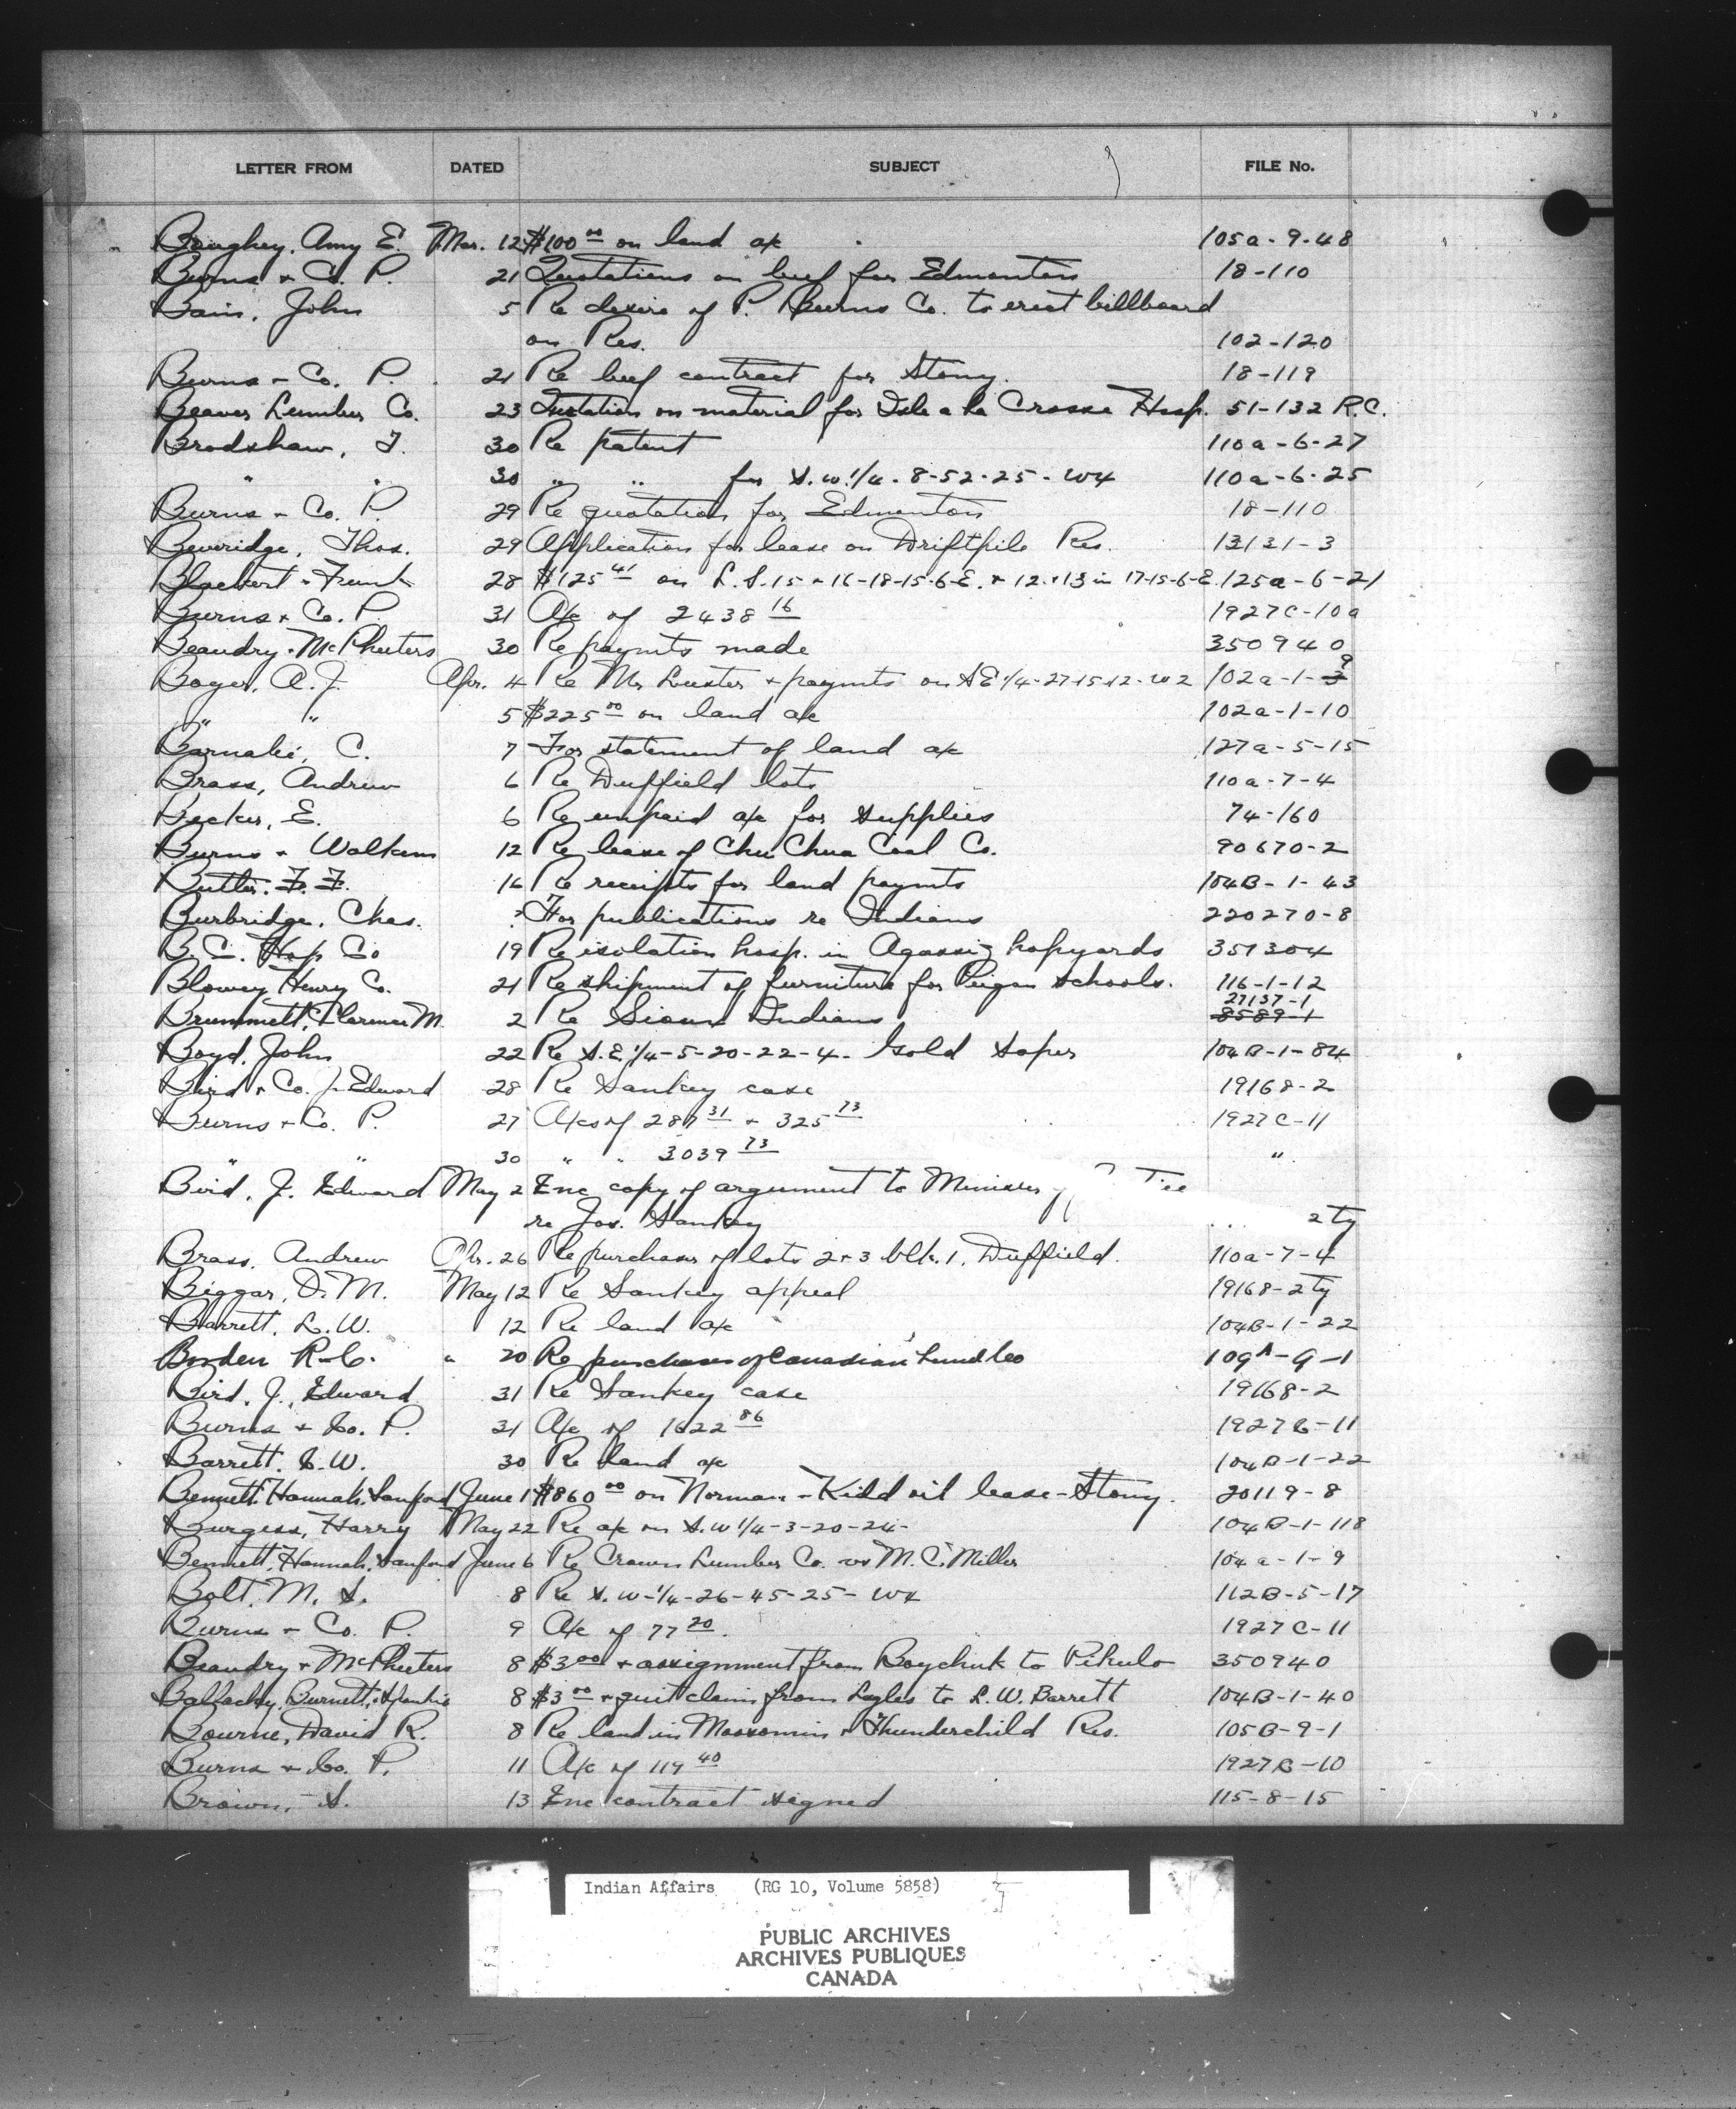 LETTER FROM DATED SUBJECT FILE No.
Boughey, Amy E. Mar. 12 $100 00 on land a/c 105a-9-48
Burns & Co. P. 21 Quotations on beef for Edmonton 18-110
Bain, John 5 Re desire of P. Burns Co. to erect billboard
on Res. 102-120
Burns & Co. P. 21 Re beef contract for Stony. 18-119
Beaver Lumber Co. 23 Quotation on material for Isle a la Crosse Hosp. 51-132 R.C.
Bradshaw, T. 30 Re patent 110a-6-27
" " 30 " " for S.W. 1/4-8-52-25-W4 110a-6-25
Burns & Co. P. 29 Re quotation for Edmonton 18-110
Beveridge, Thos. 29 Application for lease on Driftpile Res. 13131-3
28 $125 41 on L.S. 15 & 16-18-15-6-E. & 12 & 13 in 17-15-6-E. 125a-6-21
Burns & Co. P. 31 A/c of 2438 16 1927C-10a
Beaudry & McPheeters 30 Re paymts made 350940
Boger, A.J. Apr. 4 Re Mr. Luxter & paymts on SE 1/4-27-15-12-W2 102a-1-9
" " 5 $225 00 on land a/c 102a-1-10
Barnabe, C. 7 For statement of land a/c 127a-5-15
Brass, Andrew 6 Re Duffield lots 110a-7-4
Becker, E. 6 Re unpaid a/c for supplies 74-160
Burns & Walkem 12 Re lease of Chu Chua Coal Co. 90670-2
Butler, F. F. 16 Re receipts for land paymts 104B-1-43
Burbridge, Chas. ? For publications re Indians 220270-8
B.C. Hop Co 19 Re isolation hosp. in Agassiz hopyards 351304
Blowey Henry Co. 21 Re shipment of furniture for Peigan schools. 116-1-12
27137-1
Brummett, Clarence M. 2 Re Sioux Indians 8589-1
Boyd, John 22 Re S.E. 1/4-5-20-22-4. Gold Soper 104B-1-84
Bird & Co. J. Edward 28 Re Sankey case 19168-2
Burns & Co. P. 27 A/cs of 287 31 & 325 73 1927C-11
" " 30 " " 3039 73 "
Bird, J. Edward May 2 Enc copy of argument to Minister
re Jos. Sankey 2 ty
Brass, Andrew Apr. 26 Re purchase of lots 2 & 3 blk. 1, Duffield. 110a-7-4
Biggar, O.M. May 12 Re Sankey appeal 19168-2 ty
Barrett, L.W. 12 Re land a/c 104B-1-22
Borden R.C. " 20 Re purchase of Canadian 109A-9-1
Bird, J. Edward 31 Re Sankey case 19168-2
Burns & Co. P. 31 A/c of 1622 86 1927C-11
Barrett, L.W. 30 Re land a/c 104B-1-22
Bennett, Hannah, Sanford June 1 $860 00 on Norman-Kidd oil lease-Stony. 20119-8
Burgess, Harry May 22 Re a/c on S.W 1/4-3-20-24- 104B-1-118
Bennett, Hannah, Sanford June 6 Re Crown Lumber Co. vs M.C. Miller 104a-1-9
Bolt, M. S. 8 Re S.W-1/4-26-45-25-W4 112B-5-17
Burns & Co. P. 9 A/c of 77 20. 1927C-11
Beaudry & McPheeters 8 $3 00 & assignment from Boychuk to Pikulo 350940
Ballachey, Burnett, & 8 $3 00 & quit claim from Lyles to L.W. Barrett 104B-1-40
Bourne, David R. 8 Re land in Moosomin & Thunderchild Res. 105B-9-1
Burns & Co. P. 11 A/c of 119 40 1927B-10
Brown, S. 13 Enc contract signed 115-8-15
Indian Affairs (RG 10, Volume 5858)
PUBLIC ARCHIVES
ARCHIVES PUBLIQUES
CANADA